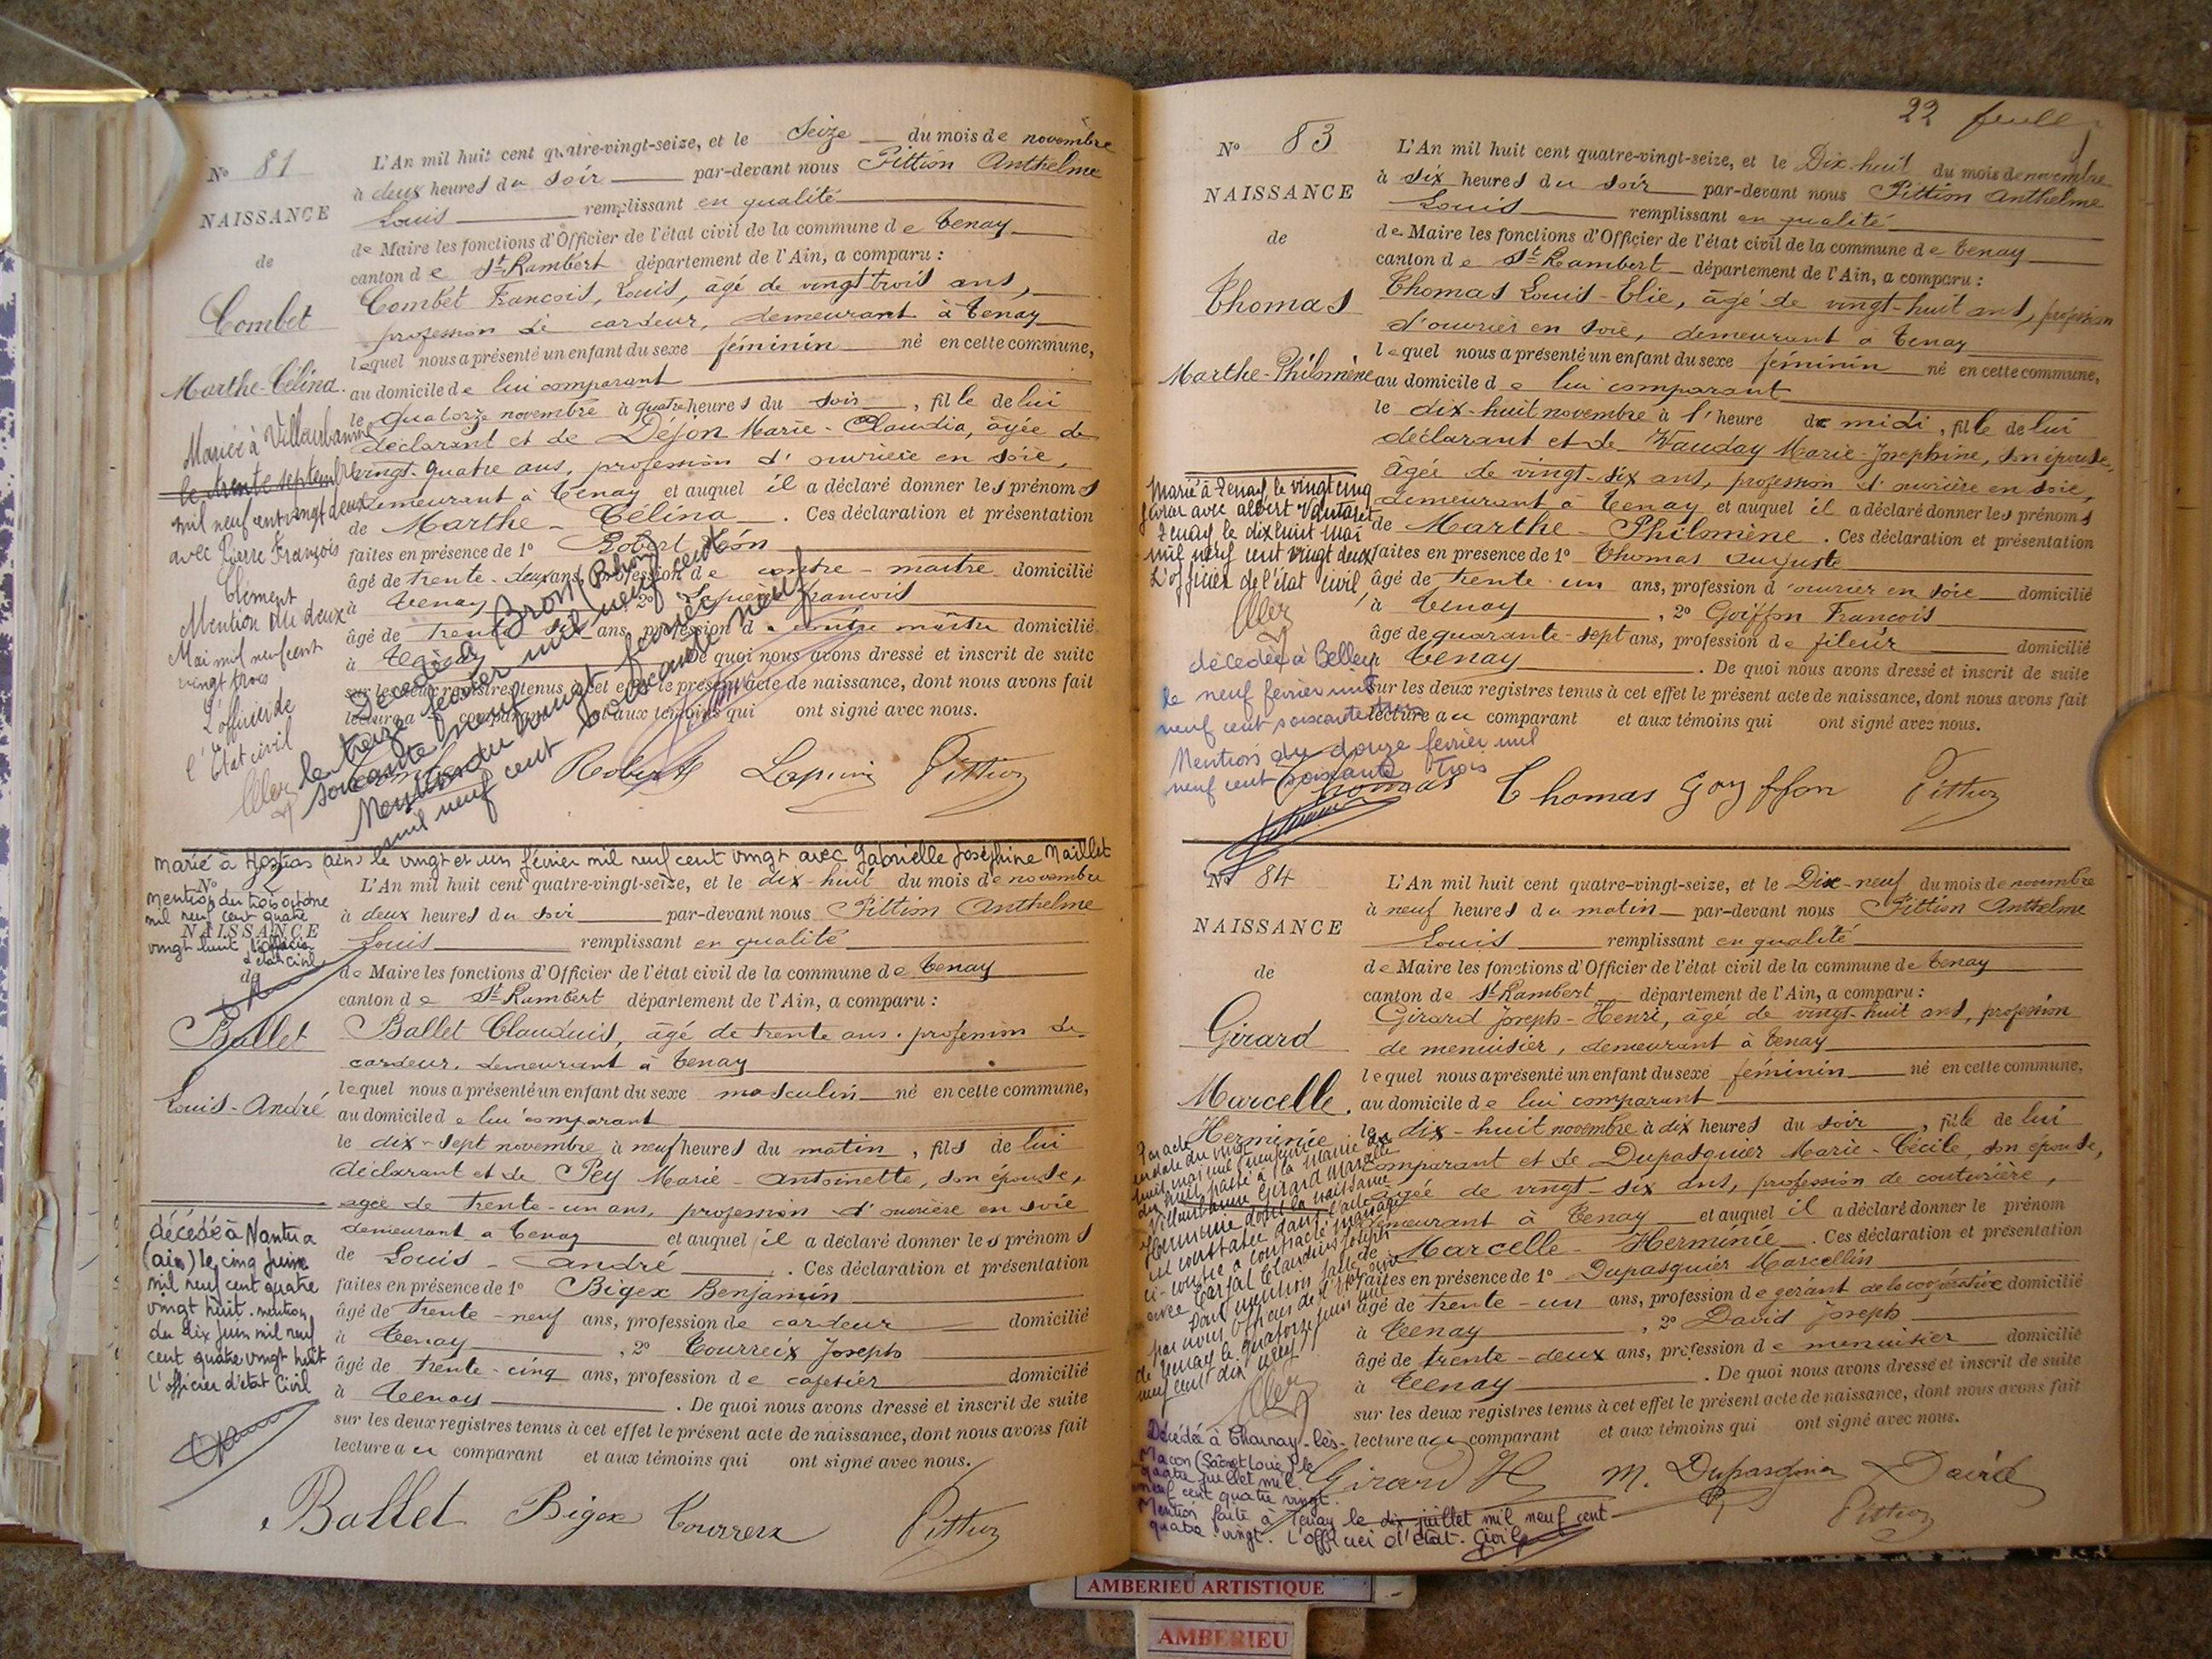 N° 81
NAISSANCE
de
Combet
Marthe-Célina.
L'An mil huit cent quatre-vingt-seize, et le Seize du mois de novembre
à deux heures du soir par-devant nous Pittion Anthelme
Louis remplissant en qualité
de Maire les fonctions d'Officier de l'état civil de la commune de Tenay
canton de St Rambert département de l'Ain, a comparu :
Combet François, Louis, âgé de vingt trois ans,
profession de cardeur, demeurant à Tenay
lequel nous a présenté un enfant du sexe féminin né en cette commune,
au domicile de lui comparant
le quatorze novembre à quatre heures du soir, fille de lui
déclarant et de Déjon Marie-Claudia, âgée de
vingt-quatre ans, profession d'ouvrière en soie,
demeurant à Tenay et auquel il a déclaré donner les prénoms
de Marthe-Célina. Ces déclaration et présentation
faites en présence de 1° Robert Léon
âgé de trente-deux ans, profession de contre-maître domicilié
à Tenay, 2° François
âgé de trente six ans, profession de contre maître domicilié
à Tenay De quoi nous avons dressé et inscrit de suite
sur les deux registres tenus à cet effet le présent acte de naissance, dont nous avons fait
lecture au comparant et aux témoins qui ont signé avec nous.
Mariée à Villeurbanne
le trente septembre
mil neuf cent vingt deux
avec Pierre François
Clément
Mention du deux
Mai mil neuf cent
vingt trois
L'officier de
l'Etat civil
Décédée à Bron (Rhône)
le treize février mil neuf cent
soixante neuf
Mention du vingt février
mil neuf cent soixante neuf
Combet Robert Pittion
marié à Hostias (ain) le vingt et un février mil neuf cent vingt avec Gabrielle Joséphine Maillet
mention du trois octobre
mil neuf cent quatre
vingt huit l'officier
d'état civil
N°
NAISSANCE
de
Ballet
Louis-André
L'An mil huit cent quatre-vingt-seize, et le dix-huit du mois de novembre
à deux heures du soir par-devant nous Pittion Anthelme
Louis remplissant en qualité
de Maire les fonctions d'Officier de l'état civil de la commune de Tenay
canton de St Rambert département de l'Ain, a comparu :
Ballet Claudius, âgé de trente ans, profession de
cardeur, demeurant à Tenay
lequel nous a présenté un enfant du sexe masculin né en cette commune,
au domicile de lui comparant
le dix-sept novembre à neuf heures du matin, fils de lui
déclarant et de Pey Marie-Antoinette, son épouse,
agée de trente-un ans, profession d'ouvrière en soie
demeurant à Tenay et auquel il a déclaré donner les prénoms
de Louis-André. Ces déclaration et présentation
faites en présence de 1° Bigex Benjamin
âgé de trente-neuf ans, profession de cardeur domicilié
à Tenay, 2° Tourreix Joseph
âgé de trente-cinq ans, profession de cafetier domicilié
à Tenay. De quoi nous avons dressé et inscrit de suite
sur les deux registres tenus à cet effet le présent acte de naissance, dont nous avons fait
lecture au comparant et aux témoins qui ont signé avec nous.
décédé à Nantua
(ain) le cinq Juin
mil neuf cent quatre
vingt huit. mention
du dix Juin mil neuf
cent quatre vingt huit
L'officier d'état Civil
Ballet Bigex Tourreix Pittion
22 feuille
N° 83
NAISSANCE
de
Thomas
Marthe-Philomène
L'An mil huit cent quatre-vingt-seize, et le Dix huit du mois de novembre
à six heures du soir par-devant nous Pittion Anthelme
Louis remplissant en qualité
de Maire les fonctions d'Officier de l'état civil de la commune de Tenay
canton de St Rambert département de l'Ain, a comparu :
Thomas Louis-Elie, âgé de vingt-huit ans, profession
d'ouvrier en soie, demeurant à Tenay
lequel nous a présenté un enfant du sexe féminin né en cette commune,
au domicile de lui comparant
le dix-huit novembre à l'heure de midi, fille de lui
déclarant et de Vauday Marie-Josephine, son épouse,
âgée de vingt-six ans, profession d'ouvrière en soie,
demeurant à Tenay et auquel il a déclaré donner les prénoms
de Marthe-Philomène. Ces déclaration et présentation
faites en présence de 1° Thomas Auguste
âgé de trente-un ans, profession d'ouvrier en soie domicilié
à Tenay, 2° Goiffon François
âgé de quarante-sept ans, profession de fileur domicilié
à Tenay. De quoi nous avons dressé et inscrit de suite
sur les deux registres tenus à cet effet le présent acte de naissance, dont nous avons fait
lecture au comparant et aux témoins qui ont signé avec nous.
Marié à Tenay, le vingt cinq
février avec Albert
Tenay le dix huit mai
mil neuf cent vingt deux
L'officier de l'état civil,
décédée à Belley
le neuf février mil
neuf cent soixante trois
Mention du douze février mil
neuf cent soixante trois
Thomas Thomas Goyffon Pittion
N° 84
NAISSANCE
de
Girard
Marcelle
Herminée
L'An mil huit cent quatre-vingt-seize, et le Dix-neuf du mois de novembre
à neuf heures du matin par-devant nous Pittion Anthelme
Louis remplissant en qualité
de Maire les fonctions d'Officier de l'état civil de la commune de Tenay
canton de St Rambert département de l'Ain, a comparu :
Girard Joseph-Henri, âgé de vingt-huit ans, profession
de menuisier, demeurant à Tenay
lequel nous a présenté un enfant du sexe féminin né en cette commune,
au domicile de lui comparant
le dix-huit novembre à dix heures du soir, fille de lui
comparant et de Dupasquier Marie-Cécile, son épouse,
âgée de vingt-six ans, profession de couturière,
demeurant à Tenay et auquel il a déclaré donner le prénom
de Marcelle-Herminée. Ces déclaration et présentation
faites en présence de 1° Dupasquier Marcellin
âgé de trente-un ans, profession de gérant de la coopérative domicilié
à Tenay, 2° David Joseph
âgé de trente-deux ans, profession de menuisier domicilié
à Tenay. De quoi nous avons dressé et inscrit de suite
sur les deux registres tenus à cet effet le présent acte de naissance, dont nous avons fait
lecture au comparant et aux témoins qui ont signé avec nous.
Par acte
en date du vingt
huit mai mil neuf cent
dix neuf passé à la mairie de
Villeurbanne Girard Marcelle
Herminée dont la naissance
est constatée dans l'acte
ci-contre a contracté mariage
avec Claudius Joseph
Dont mention faite
par nous officier de l'état civil
de Tenay le quatorze juin mil
neuf cent dix neuf
Décédée à Charnay-lès-
Macon (Saône et Loire) le
quatre juillet mil
neuf cent quatre vingt.
Mention faite à Tenay le dix juillet mil neuf cent
quatre-vingt. L'officier d'état-Civil
Girard H M. Dupasquier David
Pittion
AMBERIEU ARTISTIQUE
AMBERIEU